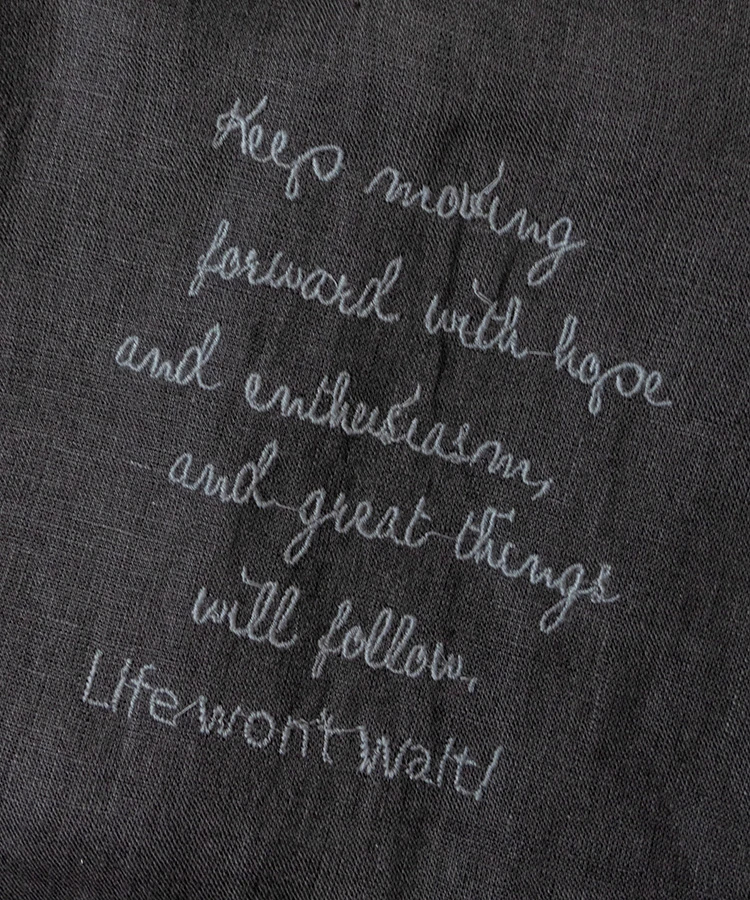 Keep moving
forward with hope
and enthusiasm,
and great things
will follow,
Life wont wait!